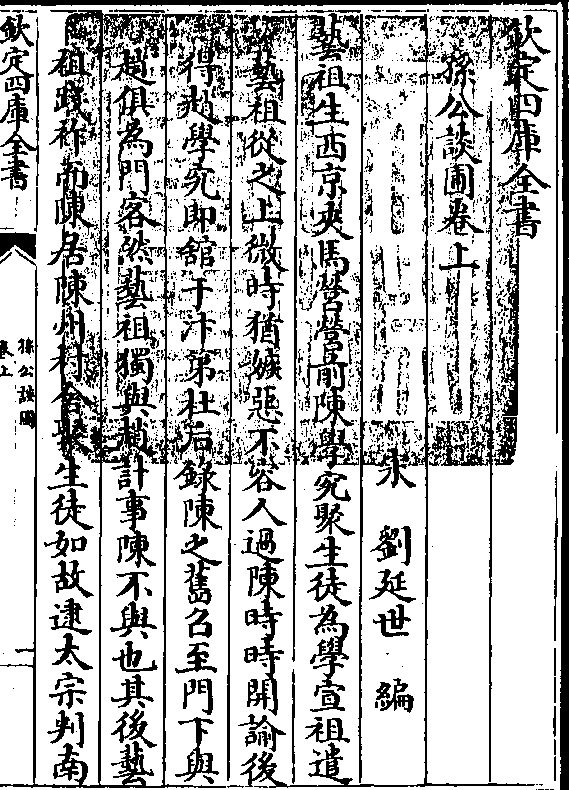 欽定四庫全書
孫公談圃卷上
宋 劉延世 編
藝祖生西京夾馬營營前陳學究聚生徒為學宣祖遣
藝祖從之上微時猶嫉惡不容人過陳時時開諭後
得趙學究即舘于汴弟杜后錄陳之舊召至門下與
趙俱為門客然藝祖獨與趙計事陳不與也其後藝
祖踐祚而陳居陳州村舍聚生徒如故逮太宗判南
欽定四庫全書
孫公談圃
卷上
一